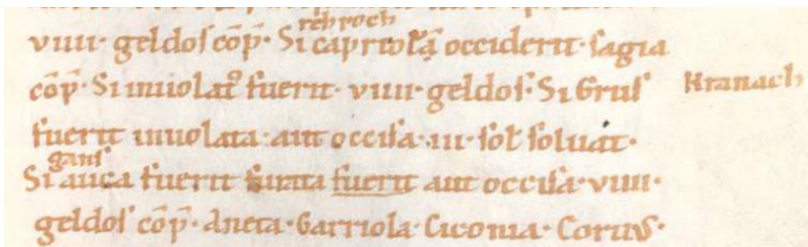 rehboch
viiii· geldos cōp̄· Si capriolā occiderit· sagia
cōp̄· Si inuiolat᷒ fuerit· viiii· geldos· Si Grus Kranach
fuerit inuolata· aut occisa· iii· sol̄ soluat·
gans
Si auca fuerit furata fuerit aut occisa· viiii·
geldos cōp̄· Aneta· Garriola· Ciconia· Coruus·